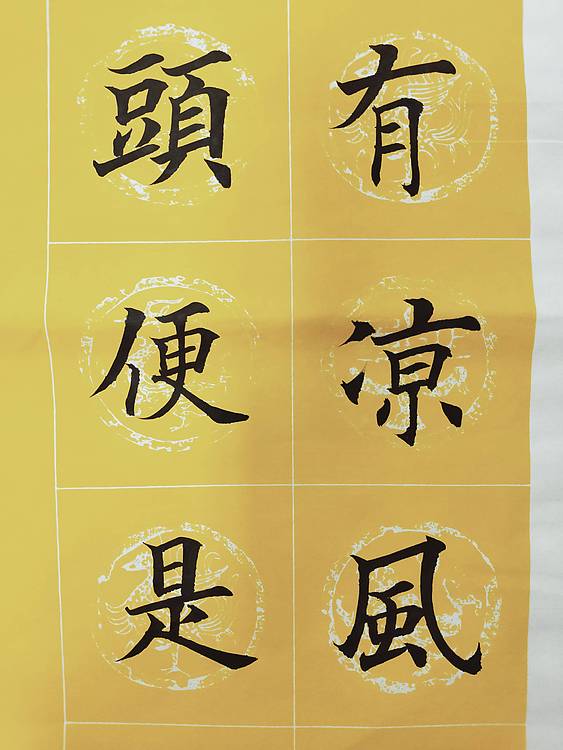 有凉風
頭便是